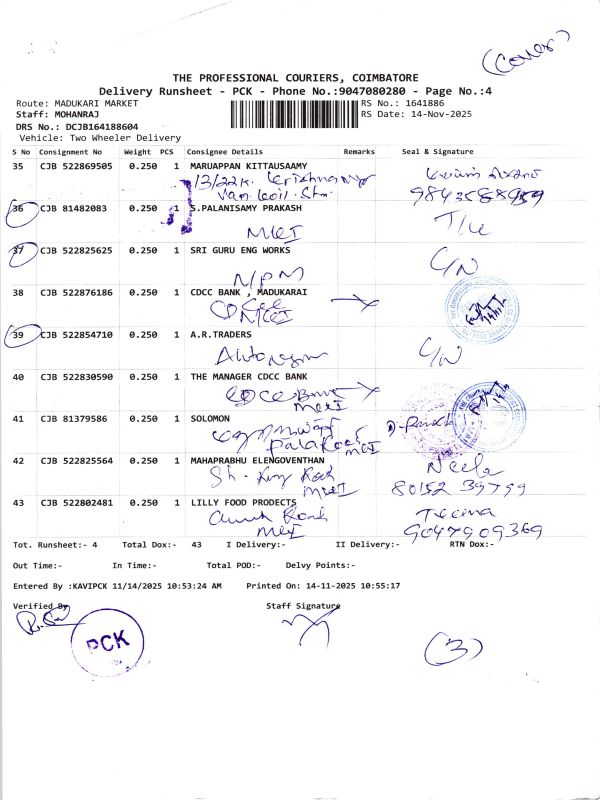 (Cover)
THE PROFESSIONAL COURIERS, COIMBATORE
Delivery Runsheet - PCK - Phone No.:9047080280 - Page No.:4
Route: MADUKARI MARKET
RS No.: 1641886
Staff: MOHANRAJ
RS Date: 14-Nov-2025
DRS No.: DCJB164188604
Vehicle: Two Wheeler Delivery
S No Consignment No Weight PCS Consignee Details Remarks Seal & Signature
35 CJB 522869505 0.250 1 MARUAPPAN KITTAUSAAMY
13/22K.
36 CJB 81482083 0.250 1 S.PALANISAMY PRAKASH
MKI
37 CJB 522825625 0.250 1 SRI GURU ENG WORKS
C/N
N/PM
38 CJB 522876186 0.250 1 CDCC BANK , MADUKARAI
39 CJB 522854710 0.250 1 A.R.TRADERS
C/N
40 CJB 522830590 0.250 1 THE MANAGER CDCC BANK
MKI
41 CJB 81379586 0.250 1 SOLOMON
MKI
42 CJB 522825564 0.250 1 MAHAPRABHU ELENGOVENTHAN
Neela
MKI
80152 39799
43 CJB 522802481 0.250 1 LILLY FOOD PRODECTS
Church Road
MKI
9047909369
Tot. Runsheet:- 4 Total Dox:- 43 I Delivery:- II Delivery:- RTN Dox:-
Out Time:- In Time:- Total POD:- Delvy Points:-
Entered By :KAVIPCK 11/14/2025 10:53:24 AM Printed On: 14-11-2025 10:55:17
Verified By
Staff Signature
PCK
(3)